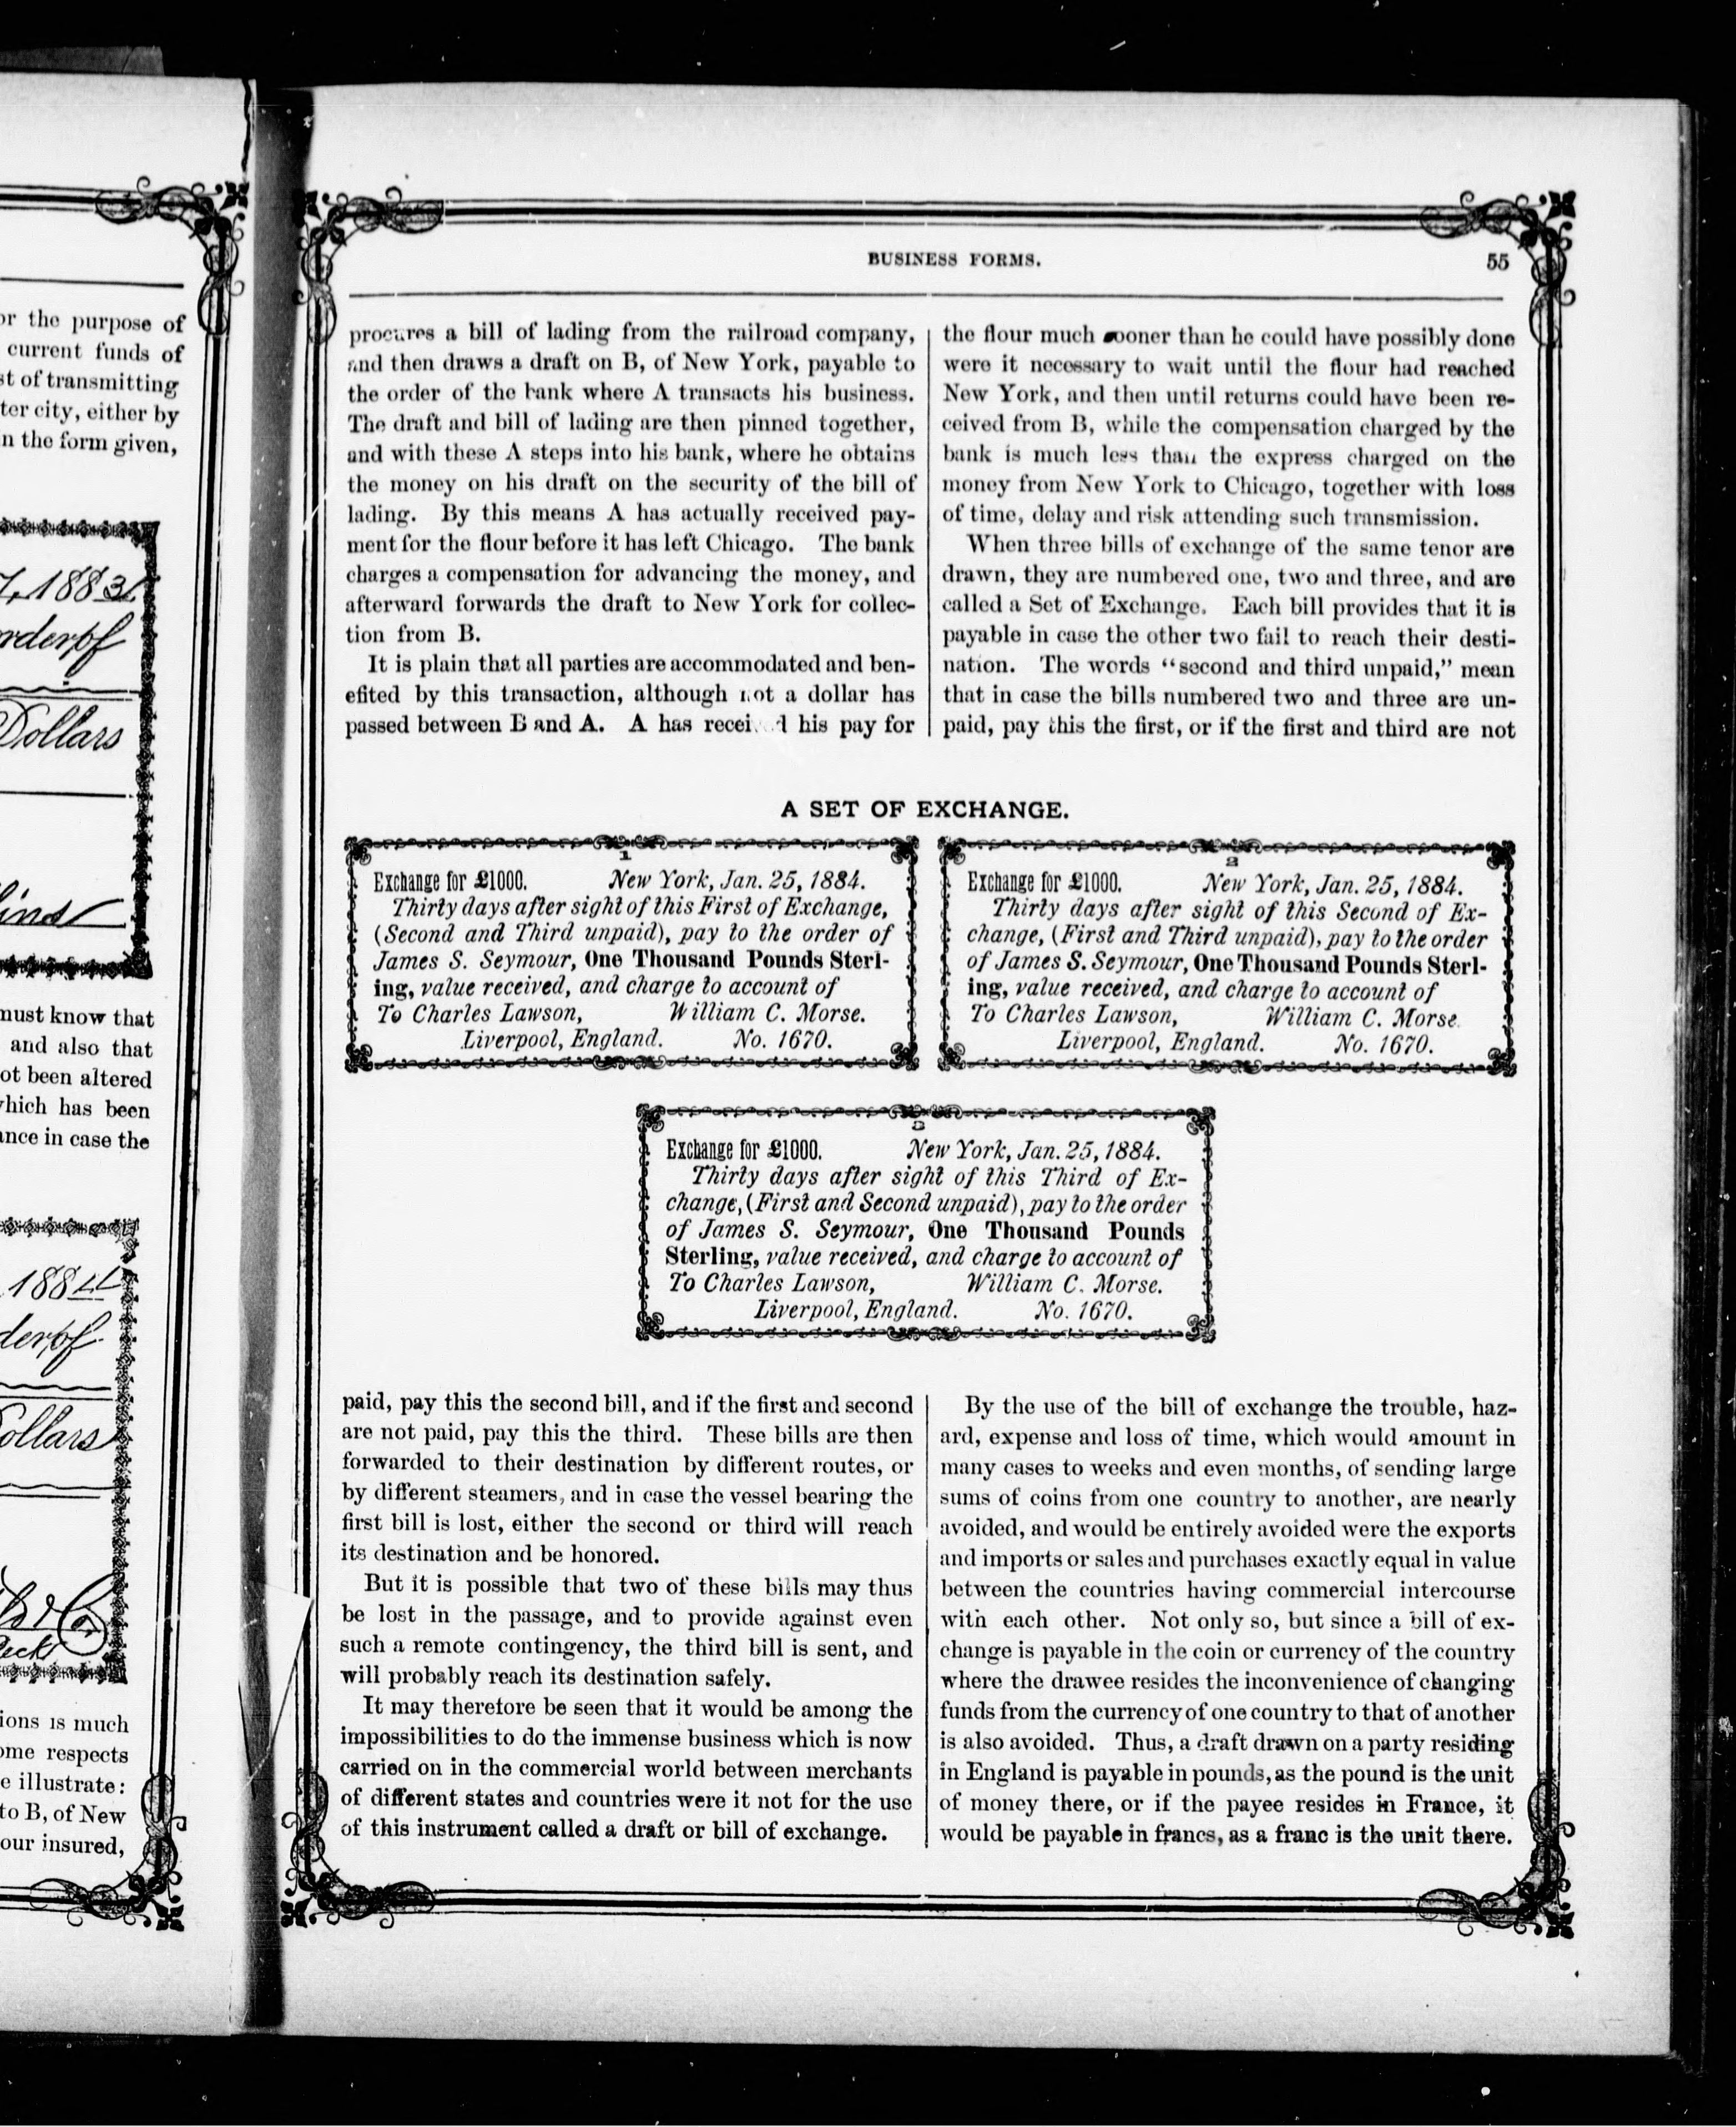 or the purpose of
current funds of
st of transmitting
ter city, either by
n the form given,
1883
order of
Dollars
must know that
and also that
ot been altered
which has been
ance in case the
1884
der of
ollars
ions is much
ome respects
e illustrate:
to B, of New
our insured,
BUSINESS FORMS.
55
procures a bill of lading from the railroad company,
and then draws a draft on B, of New York, payable to
the order of the bank where A transacts his business.
The draft and bill of lading are then pinned together,
and with these A steps into his bank, where he obtains
the money on his draft on the security of the bill of
lading. By this means A has actually received pay-
ment for the flour before it has left Chicago. The bank
charges a compensation for advancing the money, and
afterward forwards the draft to New York for collec-
tion from B.
It is plain that all parties are accommodated and ben-
efited by this transaction, although not a dollar has
passed between B and A. A has received his pay for
the flour much sooner than he could have possibly done
were it necessary to wait until the flour had reached
New York, and then until returns could have been re-
ceived from B, while the compensation charged by the
bank is much less than the express charged on the
money from New York to Chicago, together with loss
of time, delay and risk attending such transmission.
When three bills of exchange of the same tenor are
drawn, they are numbered one, two and three, and are
called a Set of Exchange. Each bill provides that it is
payable in case the other two fail to reach their desti-
nation. The words "second and third unpaid," mean
that in case the bills numbered two and three are un-
paid, pay this the first, or if the first and third are not
A SET OF EXCHANGE.
1
Exchange for £1000. New York, Jan. 25, 1884.
Thirty days after sight of this First of Exchange,
(Second and Third unpaid), pay to the order of
James S. Seymour, One Thousand Pounds Sterl-
ing, value received, and charge to account of
To Charles Lawson, William C. Morse.
Liverpool, England. No. 1670.
2
Exchange for £1000. New York, Jan. 25, 1884.
Thirty days after sight of this Second of Ex-
change, (First and Third unpaid), pay to the order
of James S. Seymour, One Thousand Pounds Sterl-
ing, value received, and charge to account of
To Charles Lawson, William C. Morse.
Liverpool, England. No. 1670.
3
Exchange for £1000. New York, Jan. 25, 1884.
Thirty days after sight of this Third of Ex-
change, (First and Second unpaid), pay to the order
of James S. Seymour, One Thousand Pounds
Sterling, value received, and charge to account of
To Charles Lawson, William C. Morse.
Liverpool, England. No. 1670.
paid, pay this the second bill, and if the first and second
are not paid, pay this the third. These bills are then
forwarded to their destination by different routes, or
by different steamers, and in case the vessel bearing the
first bill is lost, either the second or third will reach
its destination and be honored.
But it is possible that two of these bills may thus
be lost in the passage, and to provide against even
such a remote contingency, the third bill is sent, and
will probably reach its destination safely.
It may therefore be seen that it would be among the
impossibilities to do the immense business which is now
carried on in the commercial world between merchants
of different states and countries were it not for the use
of this instrument called a draft or bill of exchange.
By the use of the bill of exchange the trouble, haz-
ard, expense and loss of time, which would amount in
many cases to weeks and even months, of sending large
sums of coins from one country to another, are nearly
avoided, and would be entirely avoided were the exports
and imports or sales and purchases exactly equal in value
between the countries having commercial intercourse
with each other. Not only so, but since a bill of ex-
change is payable in the coin or currency of the country
where the drawee resides the inconvenience of changing
funds from the currency of one country to that of another
is also avoided. Thus, a draft drawn on a party residing
in England is payable in pounds, as the pound is the unit
of money there, or if the payee resides in France, it
would be payable in francs, as a franc is the unit there.